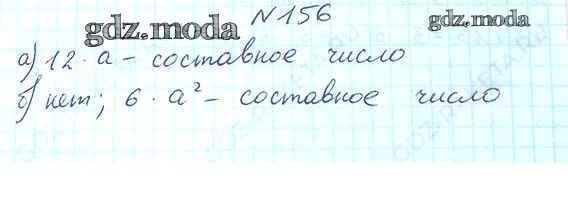 №156
gdz.moda gdz.moda
а) 12 · а - составное число
б) нет; 6 · а² - составное число